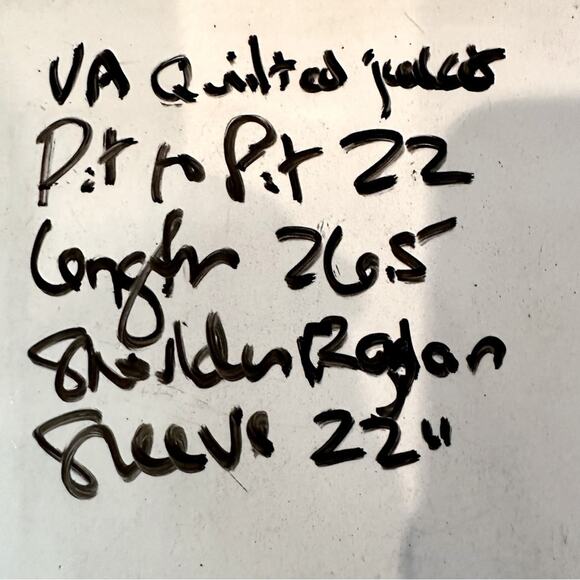 VA Quilted jacket
Pit to Pit 22
Length 26.5
Shoulder Raglan
Sleeve 22"